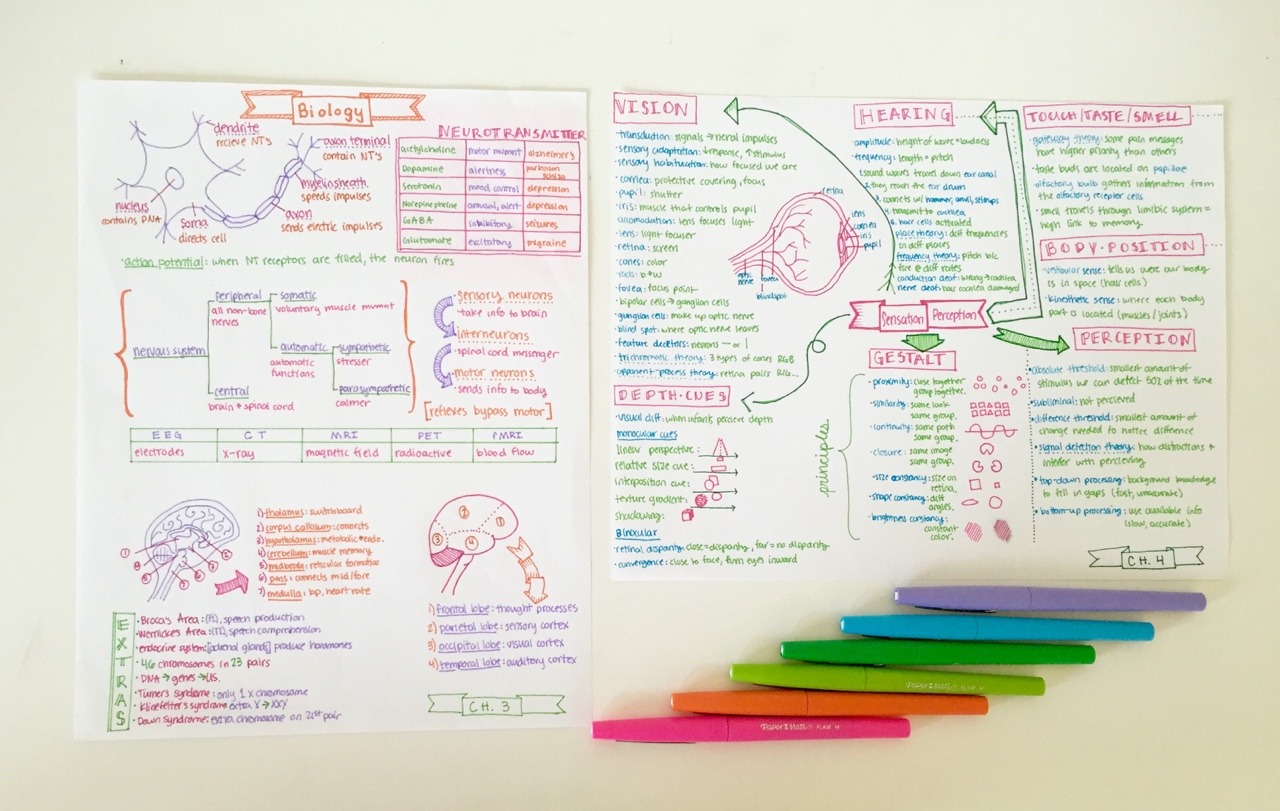 Biology
dendrite
recieve NT's
axon terminal
contain NT's
myelin sheath
speeds impulses
nucleus
contains DNA
soma
directs cell
axon
sends electric impulses
NEUROTRANSMITTER
acetylcholine motor mvmnt alzheimer's
Dopamine alertness parkinson schizo
Serotonin mood control depression
Norepinephrine arousal, alert depression
GABA inhibitory seizures
Glutamate excitatory migraine
·action potential: when NT receptors are filled, the neuron fires
nervous system
peripheral
all non-bone
nerves
somatic
voluntary muscle mvmnt
automatic
automatic
functions
sympathetic
stresser
parasympathetic
calmer
central
brain + spinal cord
·sensory neurons
·take info to brain
interneurons
·spinal cord messenger
·motor neurons
·sends info to body
[reflexes bypass motor]
EEG CT MRI PET fMRI
electrodes x-ray magnetic field radioactive blood flow
1) thalamus: switchboard
2) corpus callosum: connects
3) hypothalamus: metabolic + endo.
4) cerebellum: muscle memory
5) midbrain: reticular formation
6) pons: connects mid/fore
7) medulla: bp, heart rate
1) frontal lobe: thought processes
2) parietal lobe: sensory cortex
3) occipital lobe: visual cortex
4) temporal lobe: auditory cortex
EXTRAS
·Broca's Area: speech production
·Wernicke's Area: speech comprehension
·endocrine system: [adrenal glands] produce horomones
·46 chromosomes in 23 pairs
·DNA → genes → us.
·Turner's syndrome: only 1 x chromosome
·Klinefelter's syndrome extra X → XXY
·Down Syndrome: extra chromosome on 21st pair
CH. 3
VISION
·transduction: signals → neral impulses
·sensory adaptation: ↓response, ↑stimulus
·sensory habituation: how focused we are
·cornea: protective covering, focus
·pupil: shutter
·iris: muscle that controls pupil
·accomodation: lens focuses light
·lens: light focuser
·retina: screen
·cones: color
·rods: b+w
·fovea: focus point
·bipolar cells → ganglion cells
·ganglian cells: make up optic nerve
·blind spot: where optic nerve leaves
·feature detecters: neurons — or |
·trichromatic theory: 3 types of cones RGB
·opponent-process theory: retina pairs R/G...
retina
lens
cornea
iris
pupil
optic
nerve
fovea
blindspot
HEARING
·amplitude: height of wave = loudness
·frequency: length = pitch
1. sound waves travel down ear canal
2. they reach the ear drum
3. connects w/ hammer, anvil, stirrups
4. transmit to cochlea
5. hair cells activated
·place theory: diff frequencies
in diff places
·frequency theory: pitch b/c
fire @ diff rates
·conduction deaf: wrong → cochlea
·nerve deaf: hair cochlea damaged
TOUCH/TASTE/SMELL
·gateway theory: some pain messages
have higher priority than others
·taste buds are located on papillae
·olfactory bulb gathers information from
the olfactory receptor cells
·smell travels through limbic system =
high link to memory
BODY·POSITION
·vestibular sense: tells us were our body
is in space (hair cells)
·kinesthetic sense: where each body
part is located (muscles/joints)
Sensation Perception
DEPTH·CUES
·visual cliff: when infants percieve depth
monocular cues
linear perspective:
relative size cue:
interposition cue:
texture gradient:
shadowing:
Binocular
·retinal disparity: close = disparity, far = no disparity
·convergence: close to face, firm eyes inward
GESTALT
principles
·proximity: close together
group together.
·similarity: same look
same group.
·continuity: same path
same group.
·closure: same image
same group.
·size constancy: size on
retina.
·shape constancy: diff
angles.
·brightness constancy:
constant
color.
PERCEPTION
·absolute threshold: smallest amount of
stimulus we can detect 50% of the time
·subliminal: not percieved
·difference threshold: smallest amount of
change needed to notice difference
·signal detection theory: how distractions +
interfer with percieving
·top-down processing: background knowledge
to fill in gaps (fast, unaccurate)
·bottom-up processing: use available info
(slow, accurate)
CH. 4
Paper Mate FLAIR M
Paper Mate FLAIR M